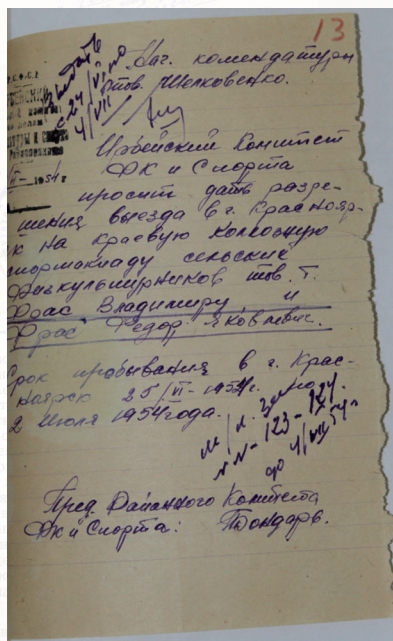 13
Выдать
с 24/VI по
4/VII
Наг. комендатуры
тов. Шелковенко.
Р.С.Ф.С.Р
1954 г
Ирбейский Комитет
ФК и Спорта
просит дать разре-
шения выезда в г. Краснояр-
к на краевую колхозную
спартакиаду сельских
Физкультурников тов. т.
Фрас Владимиру и
Фрас Федор Яковлевич.
Срок пребывания в г. Крас-
ноярск 25/VI-1954г.
2 Июля 1954 года.
NN-123-124.
до 4/VII 54г
Пред. Районного Комитета
ФК и Спорта: Бондарь.